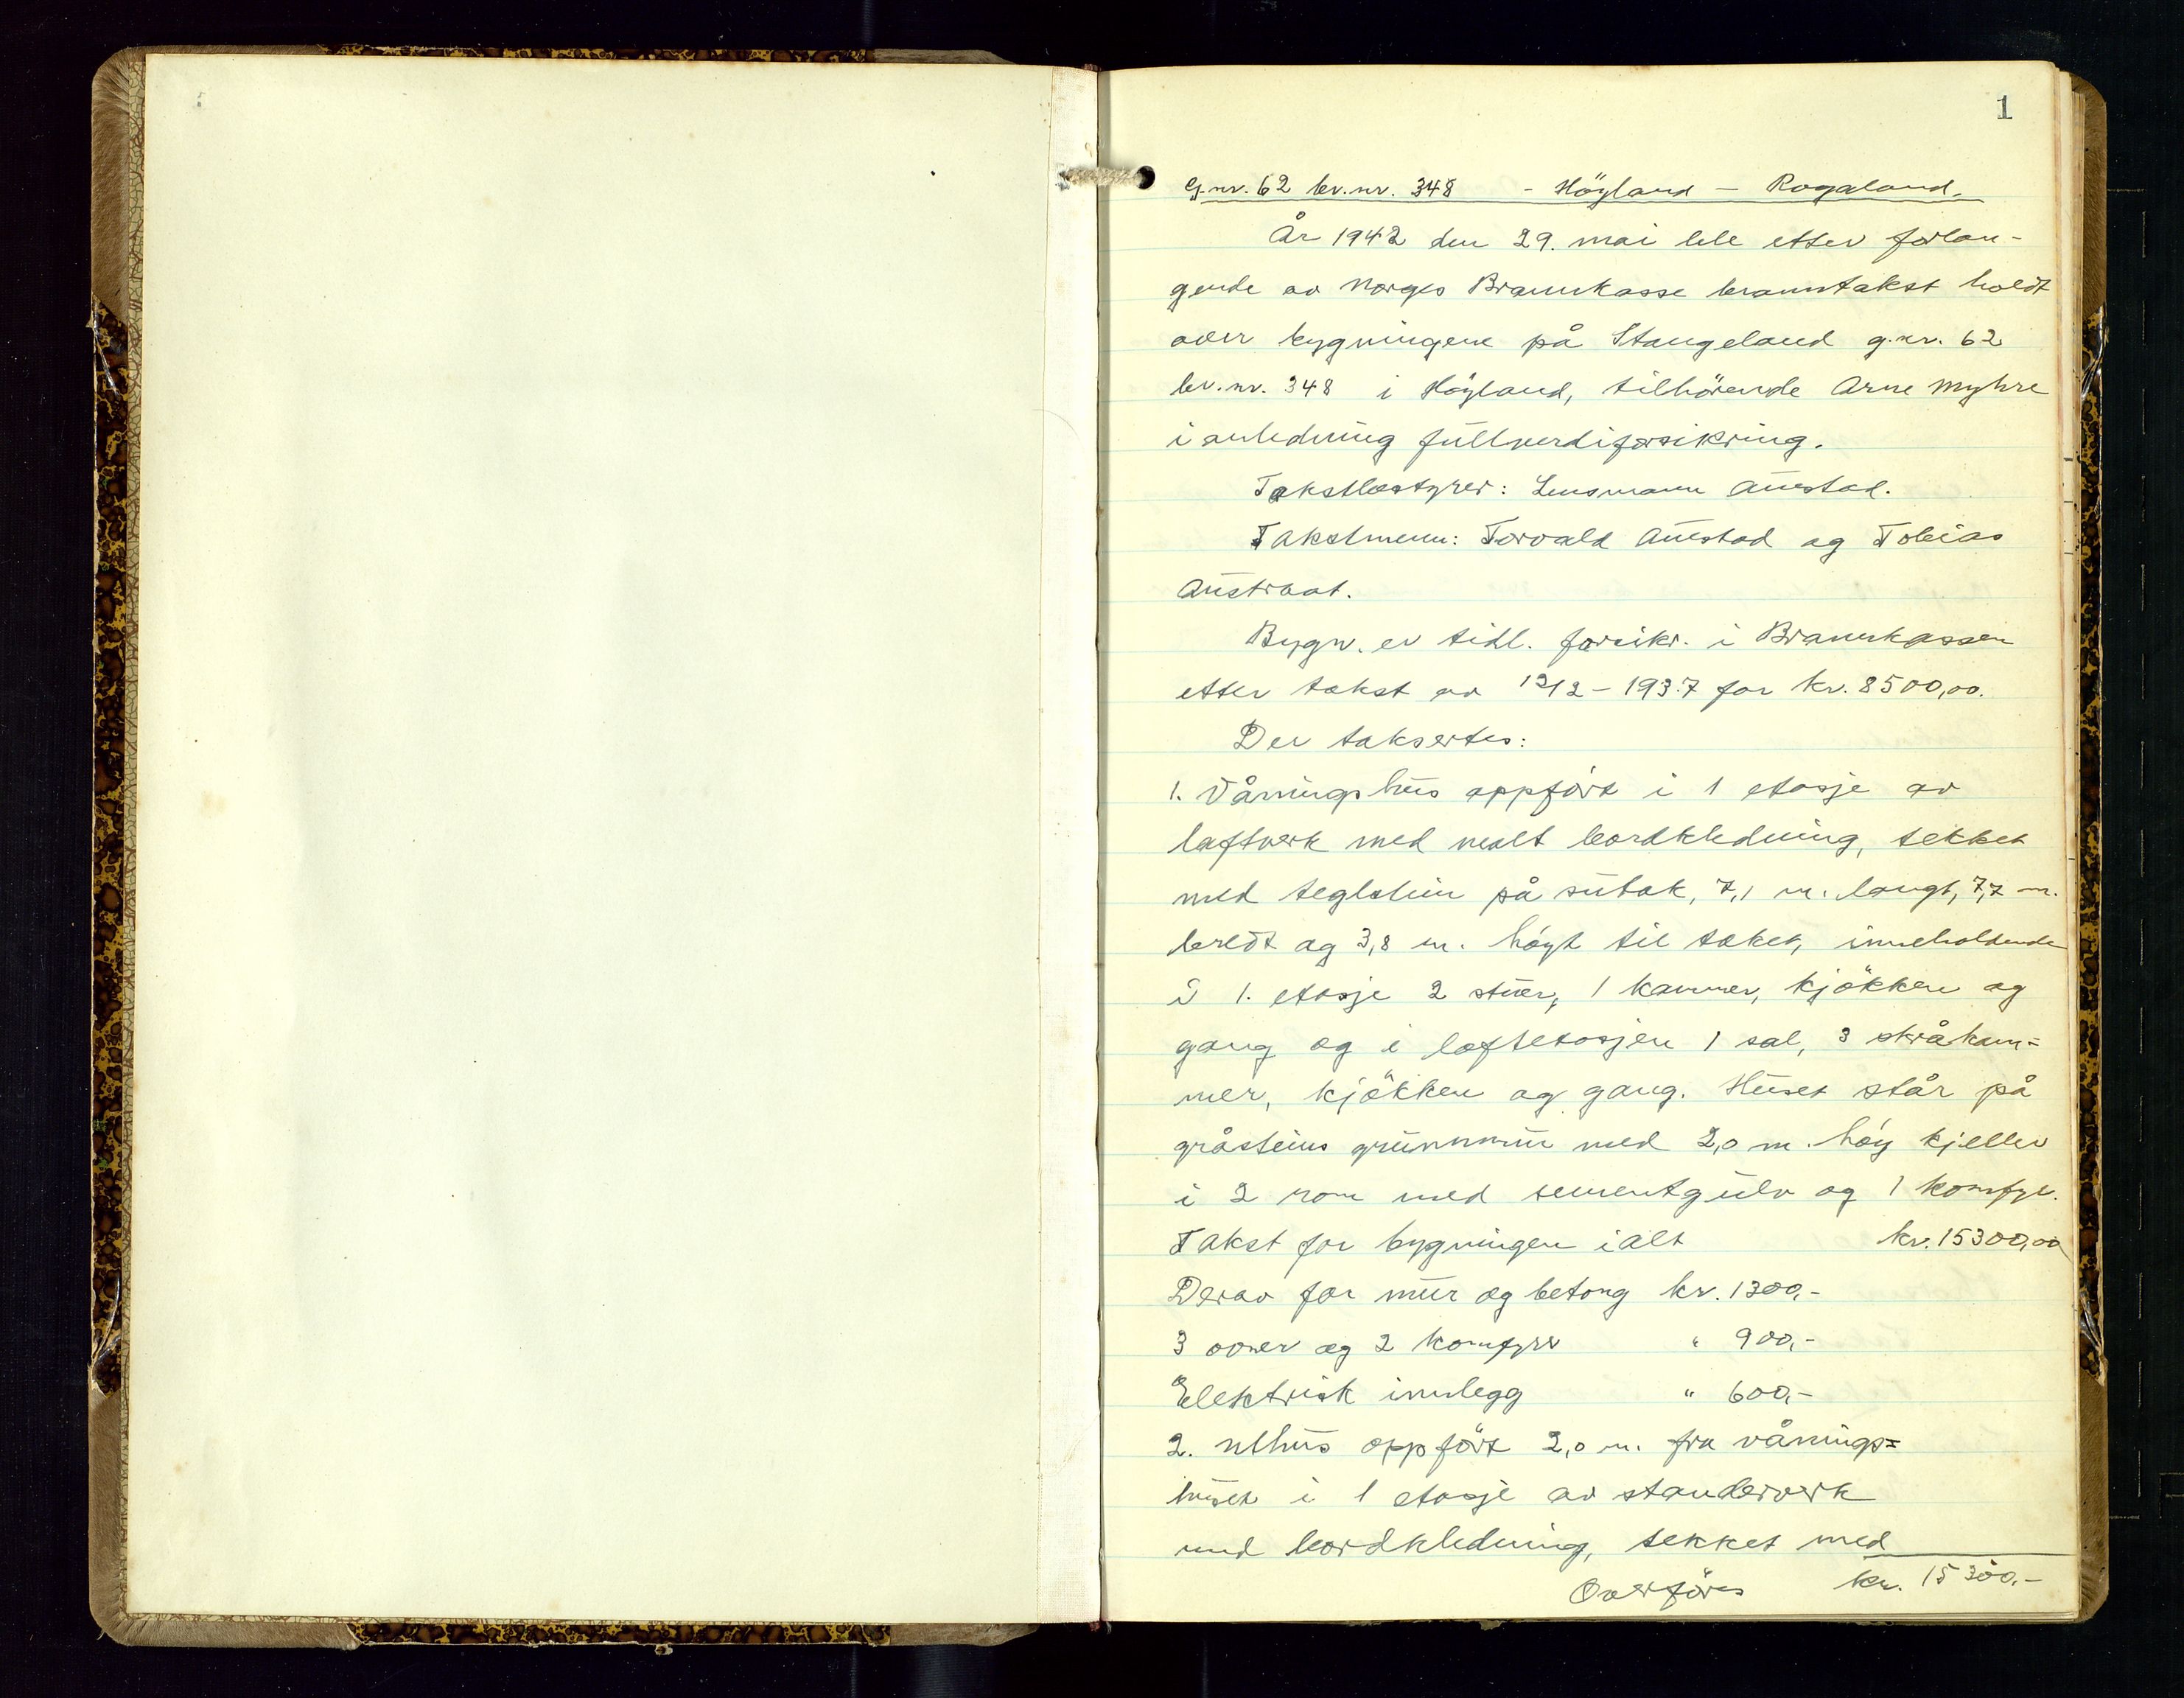 1
G.nr. 62 br.nr. 348 - Höyland - Rogaland.
År 1942 den 29. mai ble etter forlan-
gende av Norges Brannkasse branntakst holdt
over bygningene på Stangeland g.nr. 62
br.nr. 348 i Höyland, tilhörende Arne Myhre
i anledning fullverdiforsikring.
Takstbestyrer: Lensmann Austad.
Takstmenn: Torvald Austad og Tobias
Austraat.
Bygn. er tidl. forsikr. i Brannkassen
etter takst av 12/12-1937 for kr. 8500,00.
Der taksertes:
1. Våningshus oppfört i 1 etasje av
laftverk med malt bordkledning, tekket
med teglstein på sutak, 7,1 m. langt, 7,7 m.
bredt og 3,8 m. höyt til taket, inneholdende
i 1. etasje 2 stuer, 1 kammer, kjökken og
gang og i loftetasjen 1 sal, 3 skråkam=
mer, kjökken og gang. Huset står på
gråsteins grunnmur med 2,0 m. höy kjeller
i 2 rom med sementgulv og 1 komfyr.
Takst for bygningen ialt kr. 15300,00
Derav for mur og betong kr. 1300,-
3 ovner og 2 komfyrer " 900,-
Elektrisk innlegg " 600,-
2. Uthus oppfört 2,0 m. fra vånings=
huset i 1 etasje av standerverk
med bordkledning, tekket med
Overföres kr. 15300,-